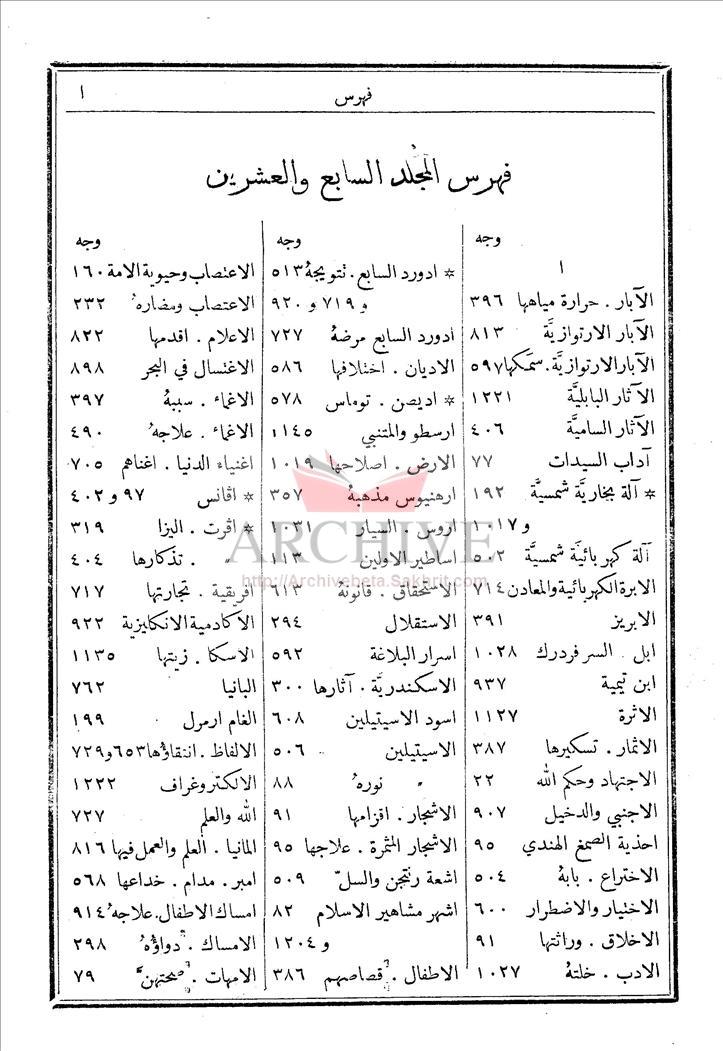 فهرس ١
فهرس المجلد السابع والعشرين
وجه
ا
الآبار . حرارة مياهها ٣٩٦
الآبار الارتوازيَّة ٨١٣
الآبار الارتوازيَّة . سمَكها ٥٩٧
الآثار البابليَّة ١٢٢١
الآثار الساميَّة ٤٠٦
آداب السيدات ٧٧
* آلة بخاريَّة شمسيَّة ١٩٢
و ١٠١٧
آلة كهربائيَّة شمسيَّة
الابرة الكهربائية والمعادن ٧١٤
الابريز ٣٩١
ابل . السر فردرك ١٠٢٨
ابن تيمية ٩٣٧
الاثرة ١١٢٧
الاثمار . تسكيرها ٣٨٧
الاجتهاد وحكم الله ٢٢
الاجنبي والدخيل ٩٠٧
احذية الصمغ الهندي ٩٥
الاختراع . بابهُ ٥٠٤
الاختيار والاضطرار ٦٠٠
الاخلاق . وراثتها ٩١
الادب . خلتهُ ١٠٢٧
وجه
* ادورد السابع . تتويجهُ ٥١٣
و ٧١٩ و ٩٢٠
ادورد السابع مرضهُ ٧٢٧
الاديان . اختلافها ٥٨٦
* اديصن . توماس ٥٧٨
ارسطو والمتنبي ١١٤٥
الارض . اصلاحها ١٠١٩
ارهنيوس مذهبهُ ٣٥٧
اروس . السيار ١٠٣١
اساطير الاولين ١١٣
الاستحقاق . قانونهُ ٦١٣
الاستقلال ٢٩٤
اسرار البلاغة ٥٩٢
الاسكندريَّة . آثارها ٣٠٠
اسود الاسيتيلين ٦٠٨
الاسيتيلين ٥٠٦
" نورهُ ٨٨
الاشجار . اقزامها ٩١
الاشجار المثمرة . علاجها ٩٥
اشعة رنتجن والسلّ ٥٠٩
اشهر مشاهير الاسلام ٨٢
و ١٢٠٤
الاطفال . قصاصهم ٣٨٦
وجه
الاعتصاب وحيوية الامة ١٦٠
الاعتصاب ومضارهُ ٢٣٢
الاعلام . اقدمها ٨٢٢
الاغتسال في البحر ٨٩٨
الاغماء . سببهُ ٣٩٧
الاغماء . علاجهُ ٤٩٠
اغنياء الدنيا . اغناهم ٧٠٥
* اڤانس ٩٧ و ٤٠٢
* اڤرت . اليزا ٣١٩
" . تذكارها ٤٠٤
افريقية . تجارتها ٧١٧
الاكادمية الانكليزية ٩٢٢
الاسكا . زيتها ١١٣٥
البانيا ٧٦٢
الغام ارمول ١٩٩
الالفاظ . انتقاؤها ٦٥٣ و ٧٢٩
الالكتروغراف ١٢٢٢
الله والعلم ٧٢٧
المانيا . العلم والعمل فيها ٨١٦
امبر . مدام . خداعها ٥٦٨
امساك الاطفال . علاجهُ ٩١٤
الامساك . دواؤهُ ٢٩٨
الامهات . صحتهنَّ ٧٩
ARCHIVE
http://Archivebeta.Sakhrit.com